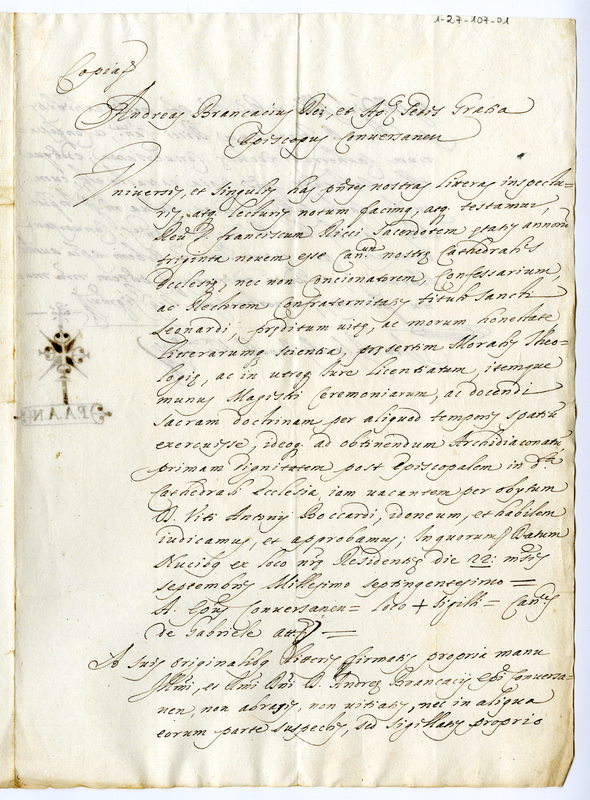 1-27-107-01
Copia
Andreas Brancacius Dei, et Ap. Sedis Gratia
Episcopus Conversanen
Universis, et singulis has pntes nostras literas inspectu=
ris, atq. lecturis notum facimq, atq. testamur,
Rev. D. Franciscum Ricci Sacerdotem ętatis annorũ
triginta novem esse Can.cum nostrę Cathedralis
Ecclesię, nec non Concionatorem, Confessarium,
ac Rectorem Confraternitatis tituli Sancti
Leonardi, pręditum vitę, ac morum honestate
litterarumq scientia, pręsertim Moralis Theo-
logię, ac in utroq Iure Licentiatum, itemque
munus Magistri Ceremoniarum, ac docendi
sacram doctrinam per aliquod temporis spatiũ
exercuisse, ideoq ad obtinendum Archidiaconatũ
primam dignitatem post Episcopalem in d.ta
Cathedrali Ecclesia, iam vacantem per obytum
D. Viti Antonij Boccardi, idoneum, et habilem
iudicamus, et approbamus; In quorum Datum
Nucibq ex loco nrę Residentię die 22: mẽsis
septembris Millesimo septingentesimo =
A. Epũs Conversanen = loco + sigilli = Can.cus
de Gabriele =
A suis originalibq litteris firmatis propria manu
Illmi, et Rmi Dni D. Andreę Brancacij epi Conversa-
nen, non abrasis, non vitiatis, nec in aliqua
eorum parte suspectis, sed sigillatis proprio
PAAN